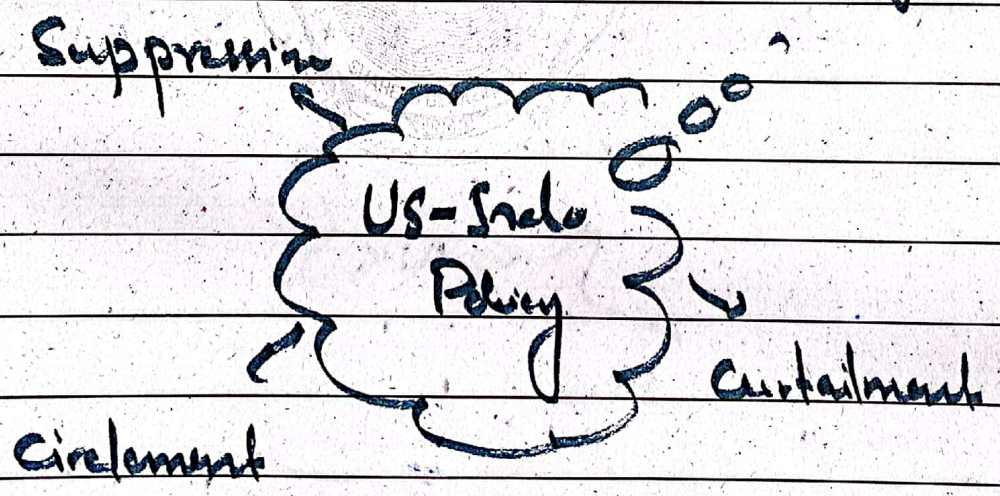 Suppression
US-Indo
Policy
Curtailment
Circlement